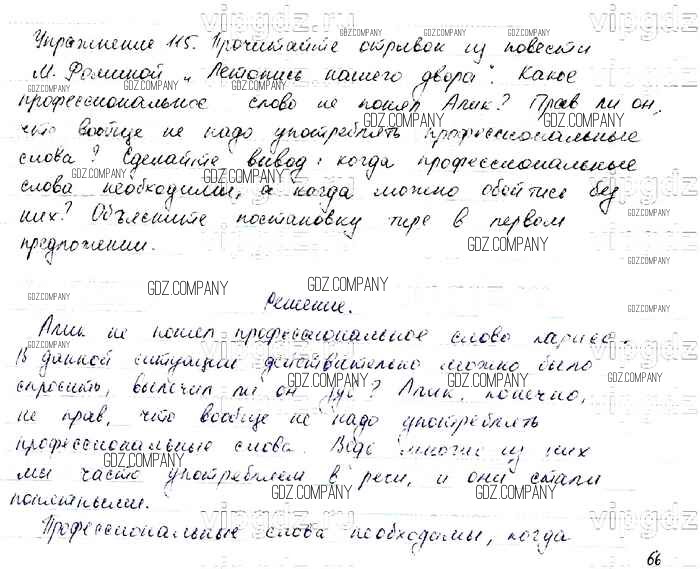 Упражнение 115. Прочитайте отрывок из повести
М. Фоминой „Летопись нашего двора". Какое
профессиональное слово не понял Алик? Прав ли он,
что вообще не надо употреблять профессиональные
слова? Сделайте вывод: когда профессиональные
слова необходимы, а когда можно обойтись без
них? Объясните постановку тире в первом
предложении.
Решение.
Алик не понял профессиональное слово кариес.
В данной ситуации действительно можно было
спросить, вылечил ли он зуб? Алик, конечно,
не прав, что вообще не надо употреблять
профессиональные слова. Ведь многие из них
мы часто употребляем в речи, и они стали
понятными.
Профессиональные слова необходимы, когда
66